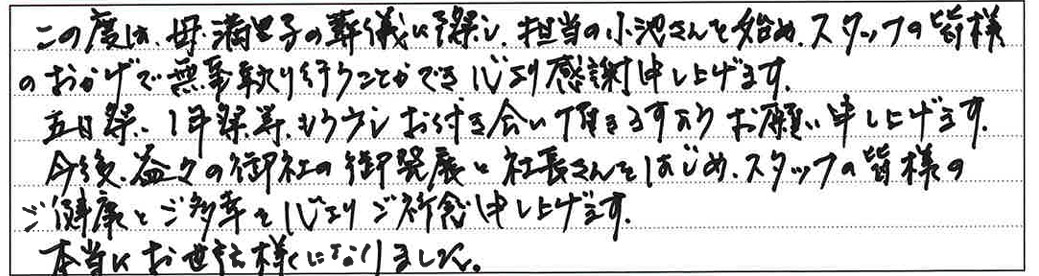 この度は、母・満里子の葬儀に際し、担当の小池さんを始め、スタッフの皆様
のおかげで無事執り行うことができ心より感謝申し上げます。
五日祭、1年祭等、もう少しお付き合い頂きますようお願い申し上げます。
今後、益々の御社の御発展と社長さんをはじめ、スタッフの皆様の
ご健康とご多幸を心よりご祈念申し上げます。
本当にお世話様になりました。